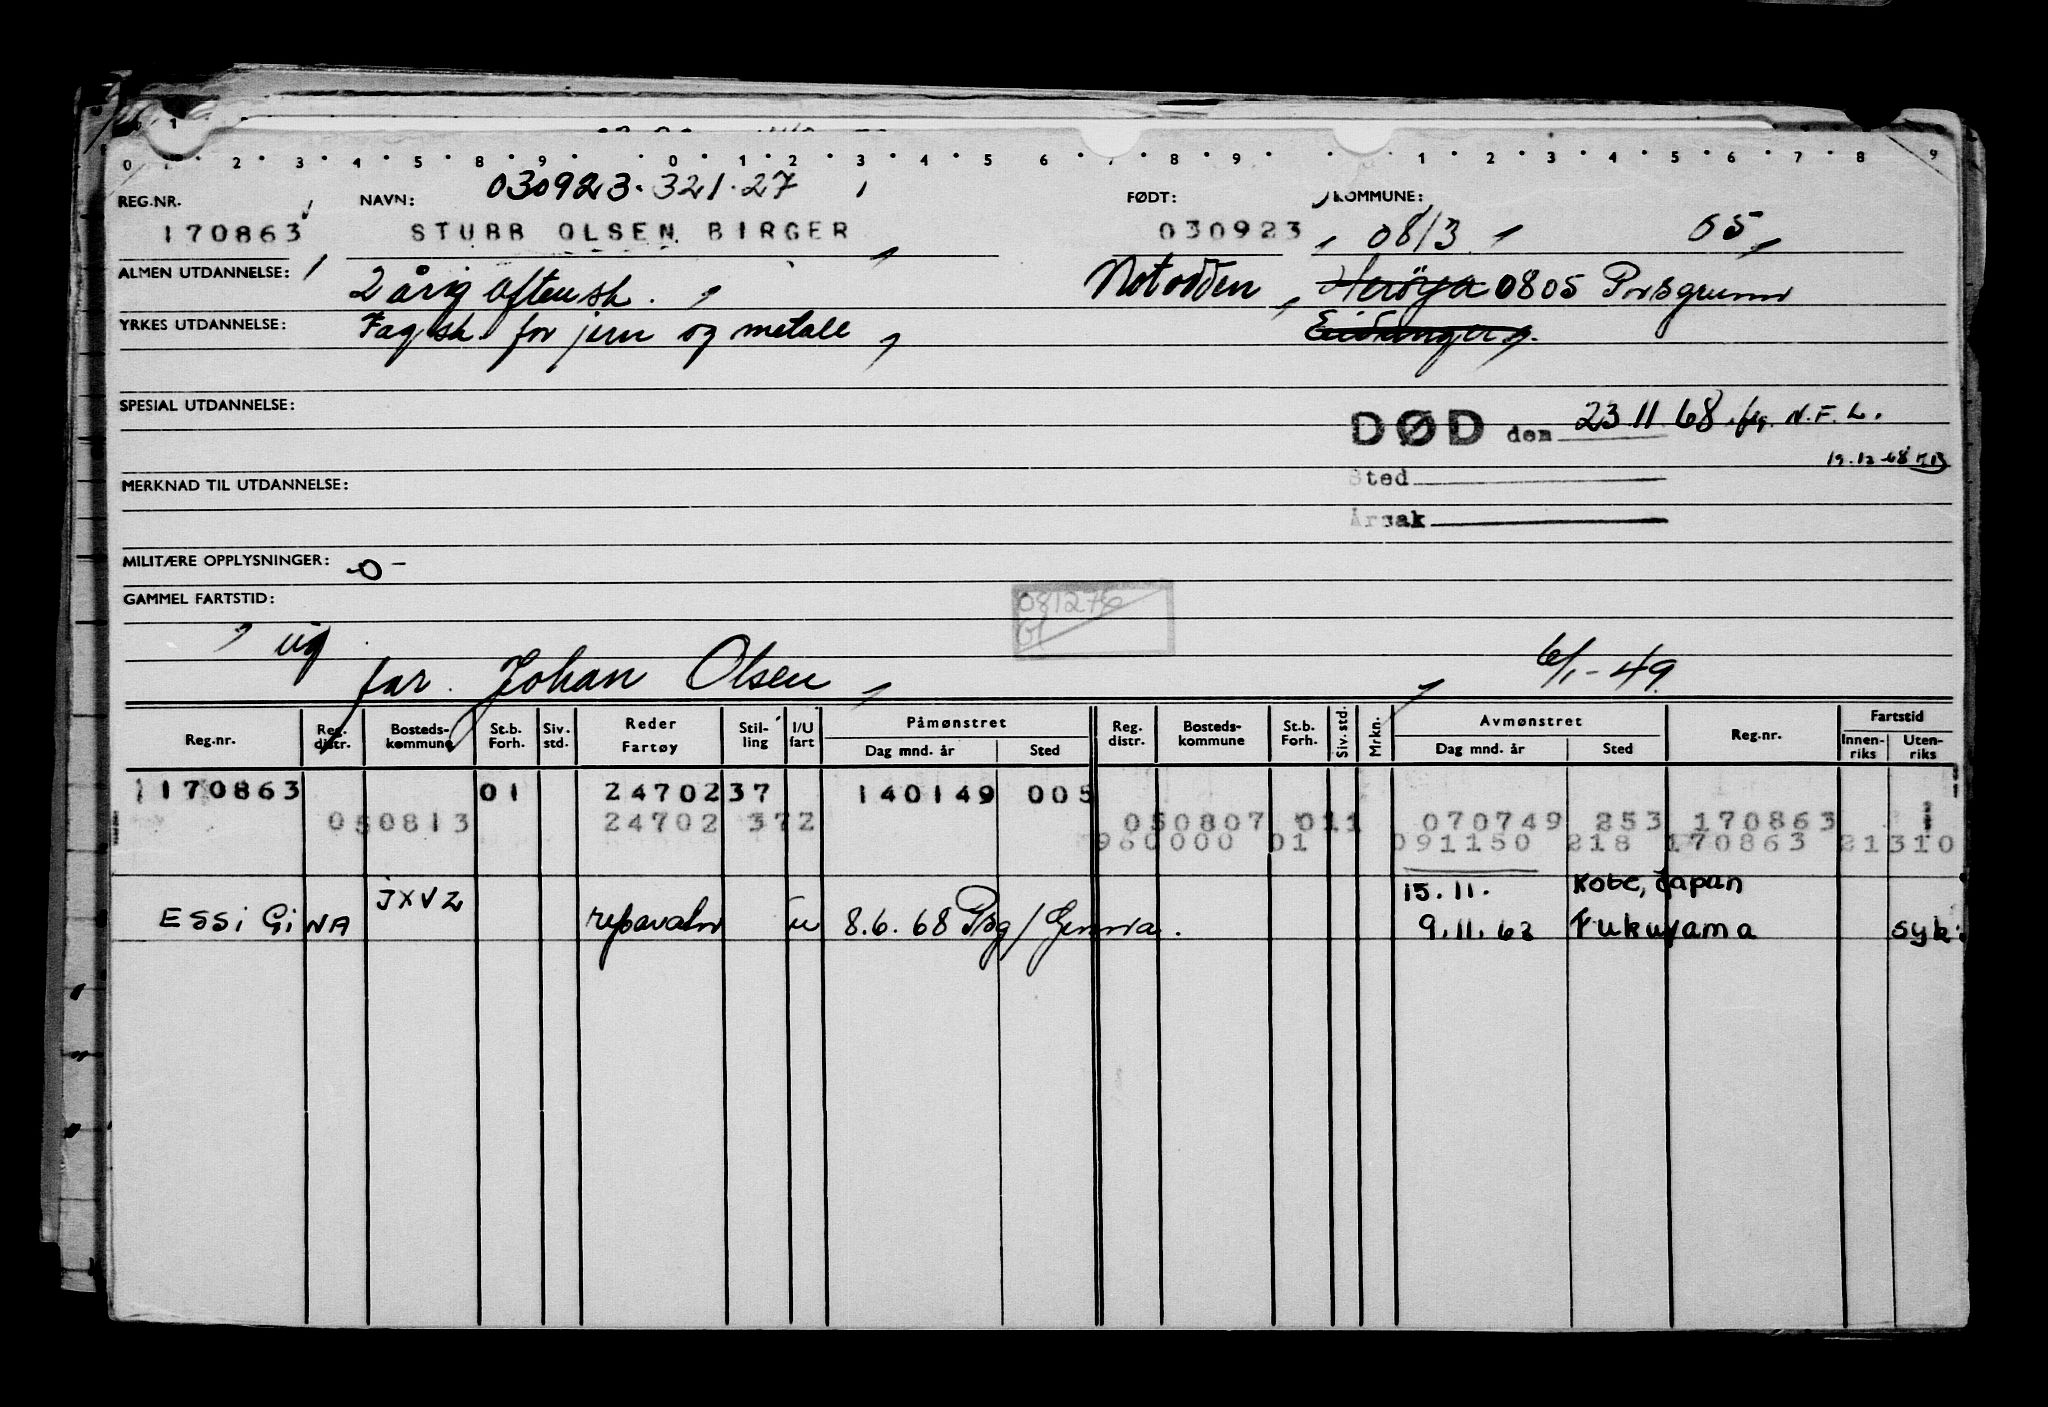 0 1 2 3 4 5 8 9 0 1 2 3 4 5 6 7 8 9 1 2 3 4 5 6 7 8 9
030923.321.27
REG.NR. NAVN: FØDT: KOMMUNE:
170863 STUBB OLSEN BIRGER 030923 0813 05
ALMEN UTDANNELSE: 2 årig aftensk. Notodden Herøya 0805 Porsgrunn
YRKES UTDANNELSE: Fagsk. for jern og metall Eidanger
SPESIAL UTDANNELSE: DØD den 23.11.68 N.F.L.
19.12.68
Sted
MERKNAD TIL UTDANNELSE:
Årsak
MILITÆRE OPPLYSNINGER: -0-
GAMMEL FARTSTID: 081276
ug
far. Johan Olsen 6/1-49
Reg.nr. Reg. distr. Bosteds-kommune St.b. Forh. Siv. std. Reder Fartøy Stil-ling I/U fart Påmønstret Dag mnd. år Sted Reg. distr. Bosteds-kommune St.b. Forh. Siv. std. Mrkn. Avmønstret Dag mnd. år Sted Reg.nr. Fartstid Innen-riks Uten-riks
170863 01 24702 37 140149 005
050813 24702 372 050807 011 070749 253 170863 1
960000 01 091150 218 170863 21310
JXVZ 15.11. Kobe, Japan
ESSI GINA reparatør u 8.6.68 Psg/Genova. 9.11.62 Fukuyama syk.